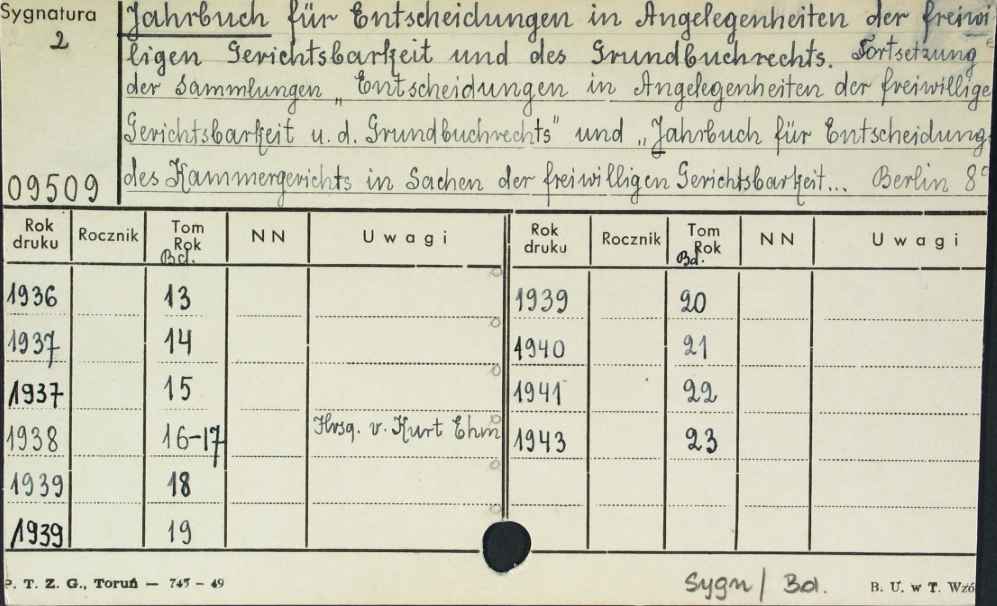 Sygnatura
2
09509
Jahrbuch für Entscheidungen in Angelegenheiten der freiwi
ligen Gerichtsbarkeit und des Grundbuchrechts. Fortsetzung
der Sammlungen „Entscheidungen in Angelegenheiten der freiwillige
Gerichtsbarkeit u. d. Grundbuchrechts" und „Jahrbuch für Entscheidung
des Kammergerichts in Sachen der freiwilligen Gerichtsbarkeit... Berlin 8°
Rok druku Rocznik Tom Rok Bd. NN Uwagi Rok druku Rocznik Tom Rok Bd. NN Uwagi
1936 13 1939 20
1937 14 1940 21
1937 15 1941 22
1938 16-17 Hrsg. v. Kurt Ehm 1943 23
1939 18
1939 19
P. T. Z. G., Toruń — 745 - 49 Sygn/ Bd. B. U. w T. Wzó